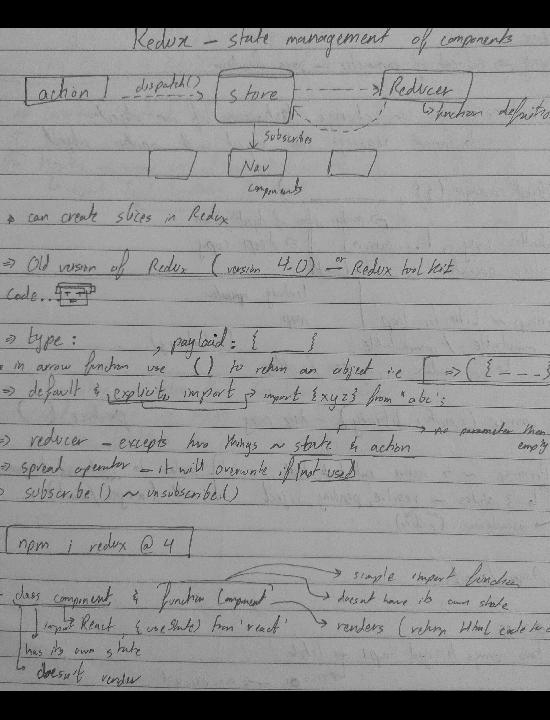 Redux - state management of components
action dispatch() store Reducer
↳ function definition
subscribes
Nav
components
can create slices in Redux
⇒ Old version of Redux ( version 4.0) - or Redux tool kit
Code..
⇒ type: , payload: { }
in arrow function use ( ) to return an object i.e => ( { - - - }
⇒ default & explicit import → import {xyz} from "abc";
⇒ reducer - excepts two things ~ state & action → no parameter then empty
⇒ spread operator - it will overwrite if not used
subscribe() ~ unsubscribe()
npm i redux @ 4
→ simple import function
class component & function Component → doesnt have its own state
import React, {useState} from 'react' → renders (return Html code
has its own state
doesn't render